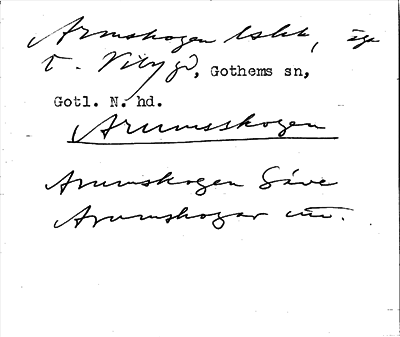 Armskogen
t. Vitviken, Gothems sn,
Gotl. N. hd.
Arumsskogen
Arumskogen Säve
Arumskogar